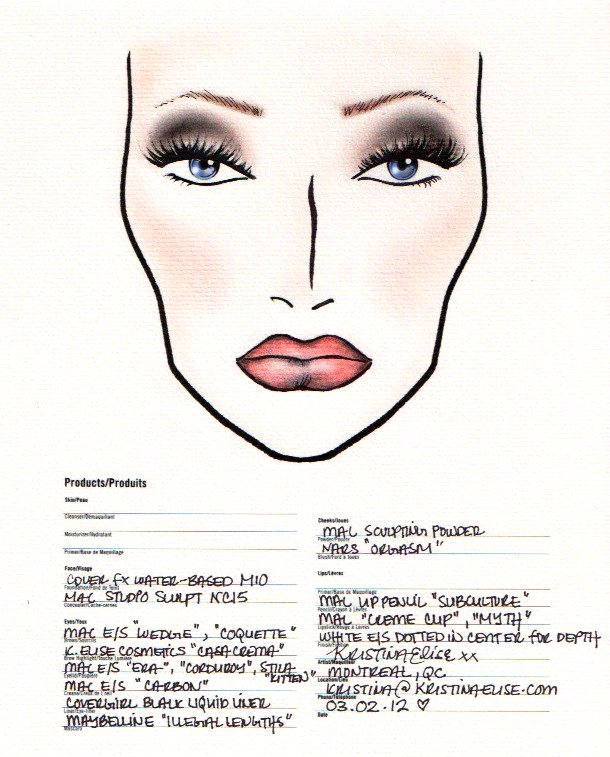 Products/Produits
Skin/Peau
Cleanser/Démaquillant
Moisturizer/Hydratant
Primer/Base de Maquillage
Face/Visage
COVER FX WATER-BASED M10
Foundation/Fond de Teint
MAC STUDIO SCULPT NC15
Concealer/Cache-cernes
Eyes/Yeux
MAC E/S "WEDGE", "COQUETTE"
Brows/Sourcils
K. ELISE COSMETICS "CASACREMA"
Brow Highlight/Touche Lumière
MAC E/S "ERA", "CORDUROY", STILA "KITTEN"
Eyelid/Paupière
MAC E/S "CARBON"
Crease/Creux de l'œil
COVERGIRL BLACK LIQUID LINER
Liner/Eye-liner
MAYBELLINE "ILLEGAL LENGTHS"
Mascara
Cheeks/Joues
MAC SCULPTING POWDER
Powder/Poudre
NARS "ORGASM"
Blush/Fard à Joues
Lips/Lèvres
Primer/Base de Maquillage
MAC LIP PENCIL "SUBCULTURE"
Pencil/Crayon à Lèvres
MAC "CREME CUP", "MYTH"
Lipstick/Rouge à Lèvres
WHITE E/S DOTTED IN CENTER FOR DEPTH
KRISTINA ELISE xx
Artist/Maquilleur
MONTREAL, QC
Location/Lieu
KRISTINA@KRISTINAELISE.COM
Phone/Téléphone
03.02.12 ♡
Date